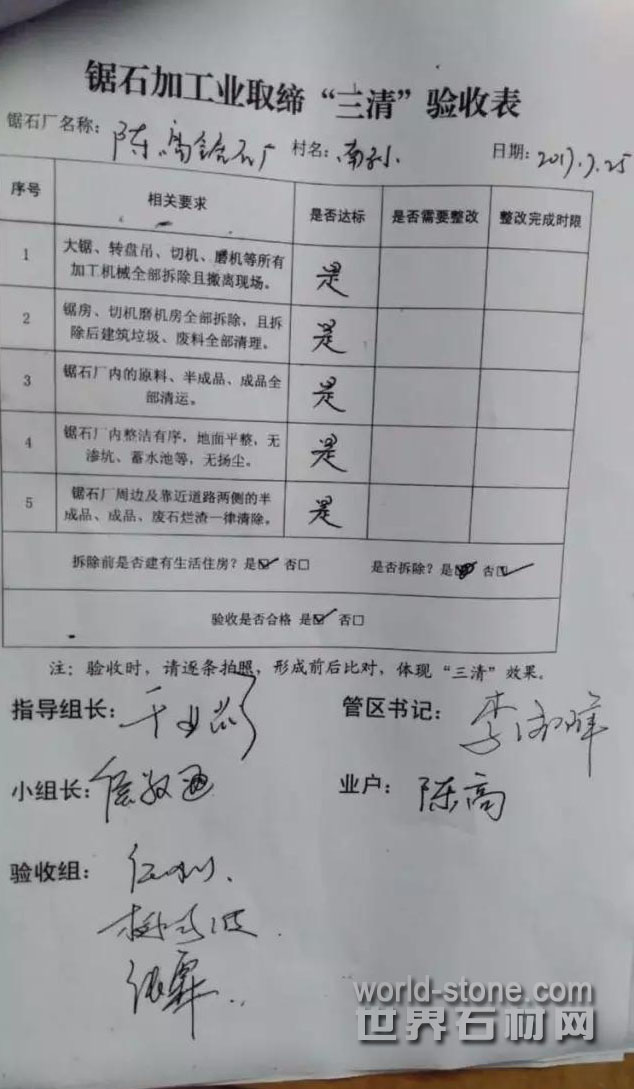 锯石加工业取缔“三清”验收表
锯石厂名称：陈高 石厂 村名： 日期：2017.7.25
序号 相关要求 是否达标 是否需要整改 整改完成时限
1 大锯、转盘吊、切机、磨机等所有加工机械全部拆除且撤离现场。 是
2 锯房、切机磨机房全部拆除，且拆除后建筑垃圾、废料全部清理。 是
3 锯石厂内的原料、半成品、成品全部清运。 是
4 锯石厂内整洁有序，地面平整，无渗坑、蓄水池等，无扬尘。 是
5 锯石厂周边及靠近道路两侧的半成品、成品、废石烂渣一律清除。 是
拆除前是否建有生活住房？是☑ 否□ 是否拆除？是■ 否☑
验收是否合格 是☑ 否□
注：验收时，请逐条拍照，形成前后比对，体现“三清”效果。
指导组长： 管区书记：
小组长： 业户：陈高
验收组：
world-stone.com
世界石材网